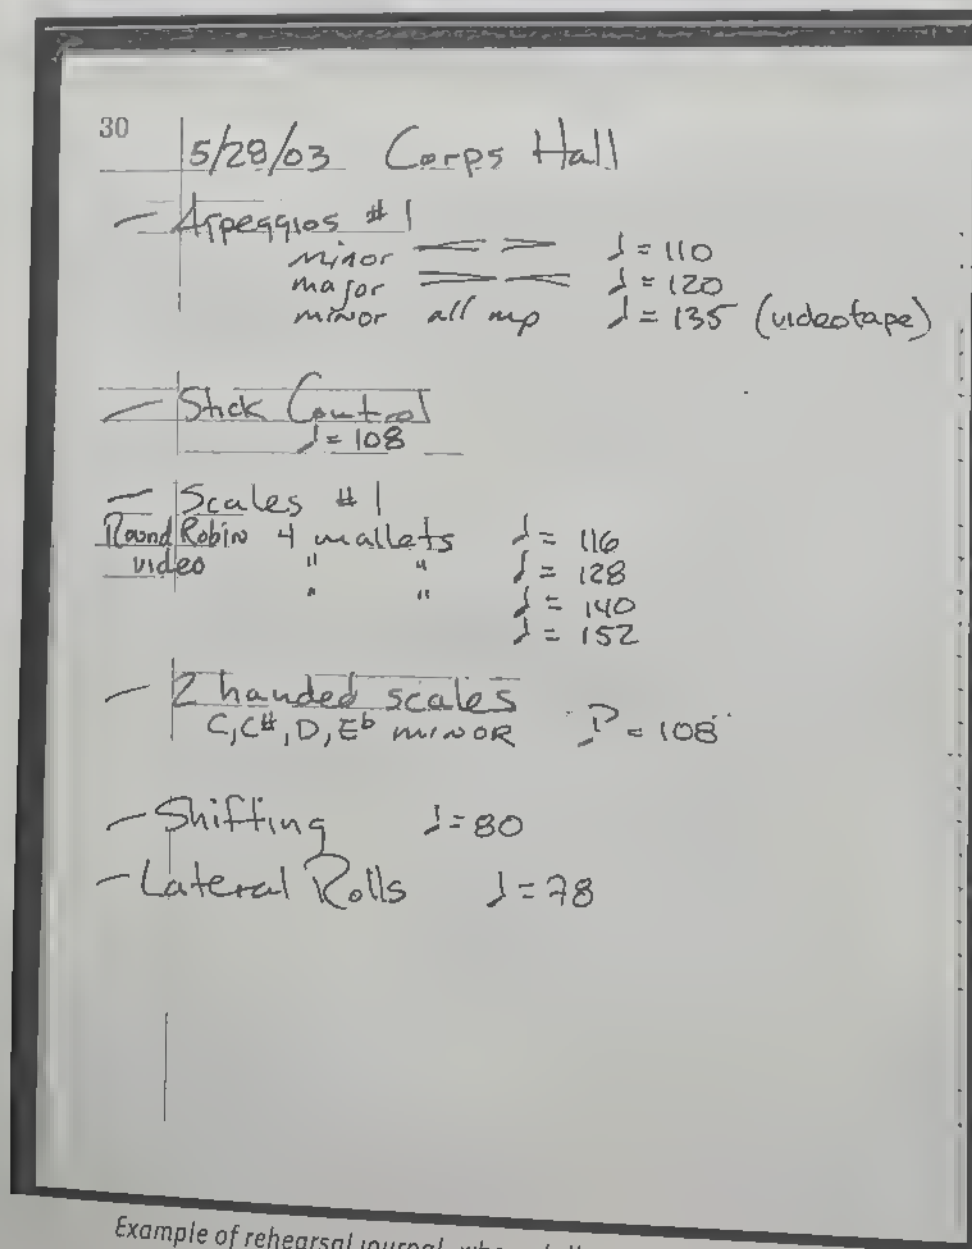 30
5/28/03 Corps Hall
— Arpeggios #1
minor < > ♩ = 110
major > < ♩ = 120
minor all mp ♩ = 135 (videotape)
— Stick Control
♩ = 108
— Scales #1
Round Robin 4 mallets ♩ = 116
video " " ♩ = 128
" " ♩ = 140
♩ = 152
— 2 handed scales
C, C#, D, Eb minor ♪ = 108
— Shifting ♩ = 80
— Lateral Rolls ♩ = 78
Example of rehearsal journal